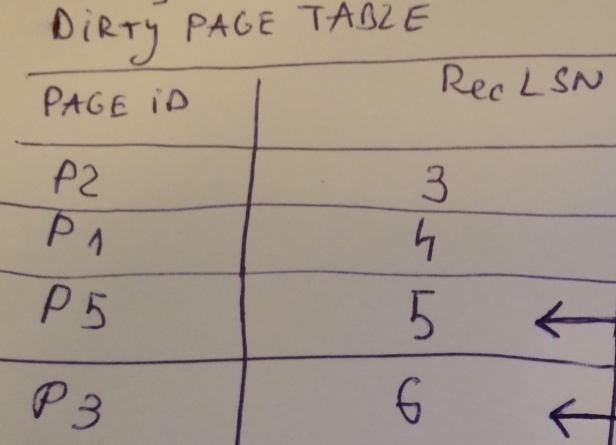 DiRTy PAGE TABLE
PAGE iD RecLSN
P2 3
P1 4
P5 5 ←
P3 6 ←